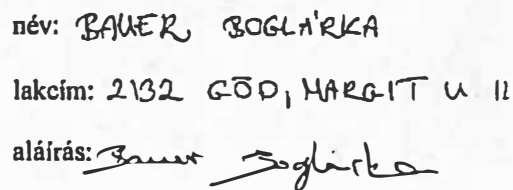 név: BAUER BOGLÁRKA
lakcím: 2132 GÖD, MARGIT U 11
aláírás: Bauer Boglárka